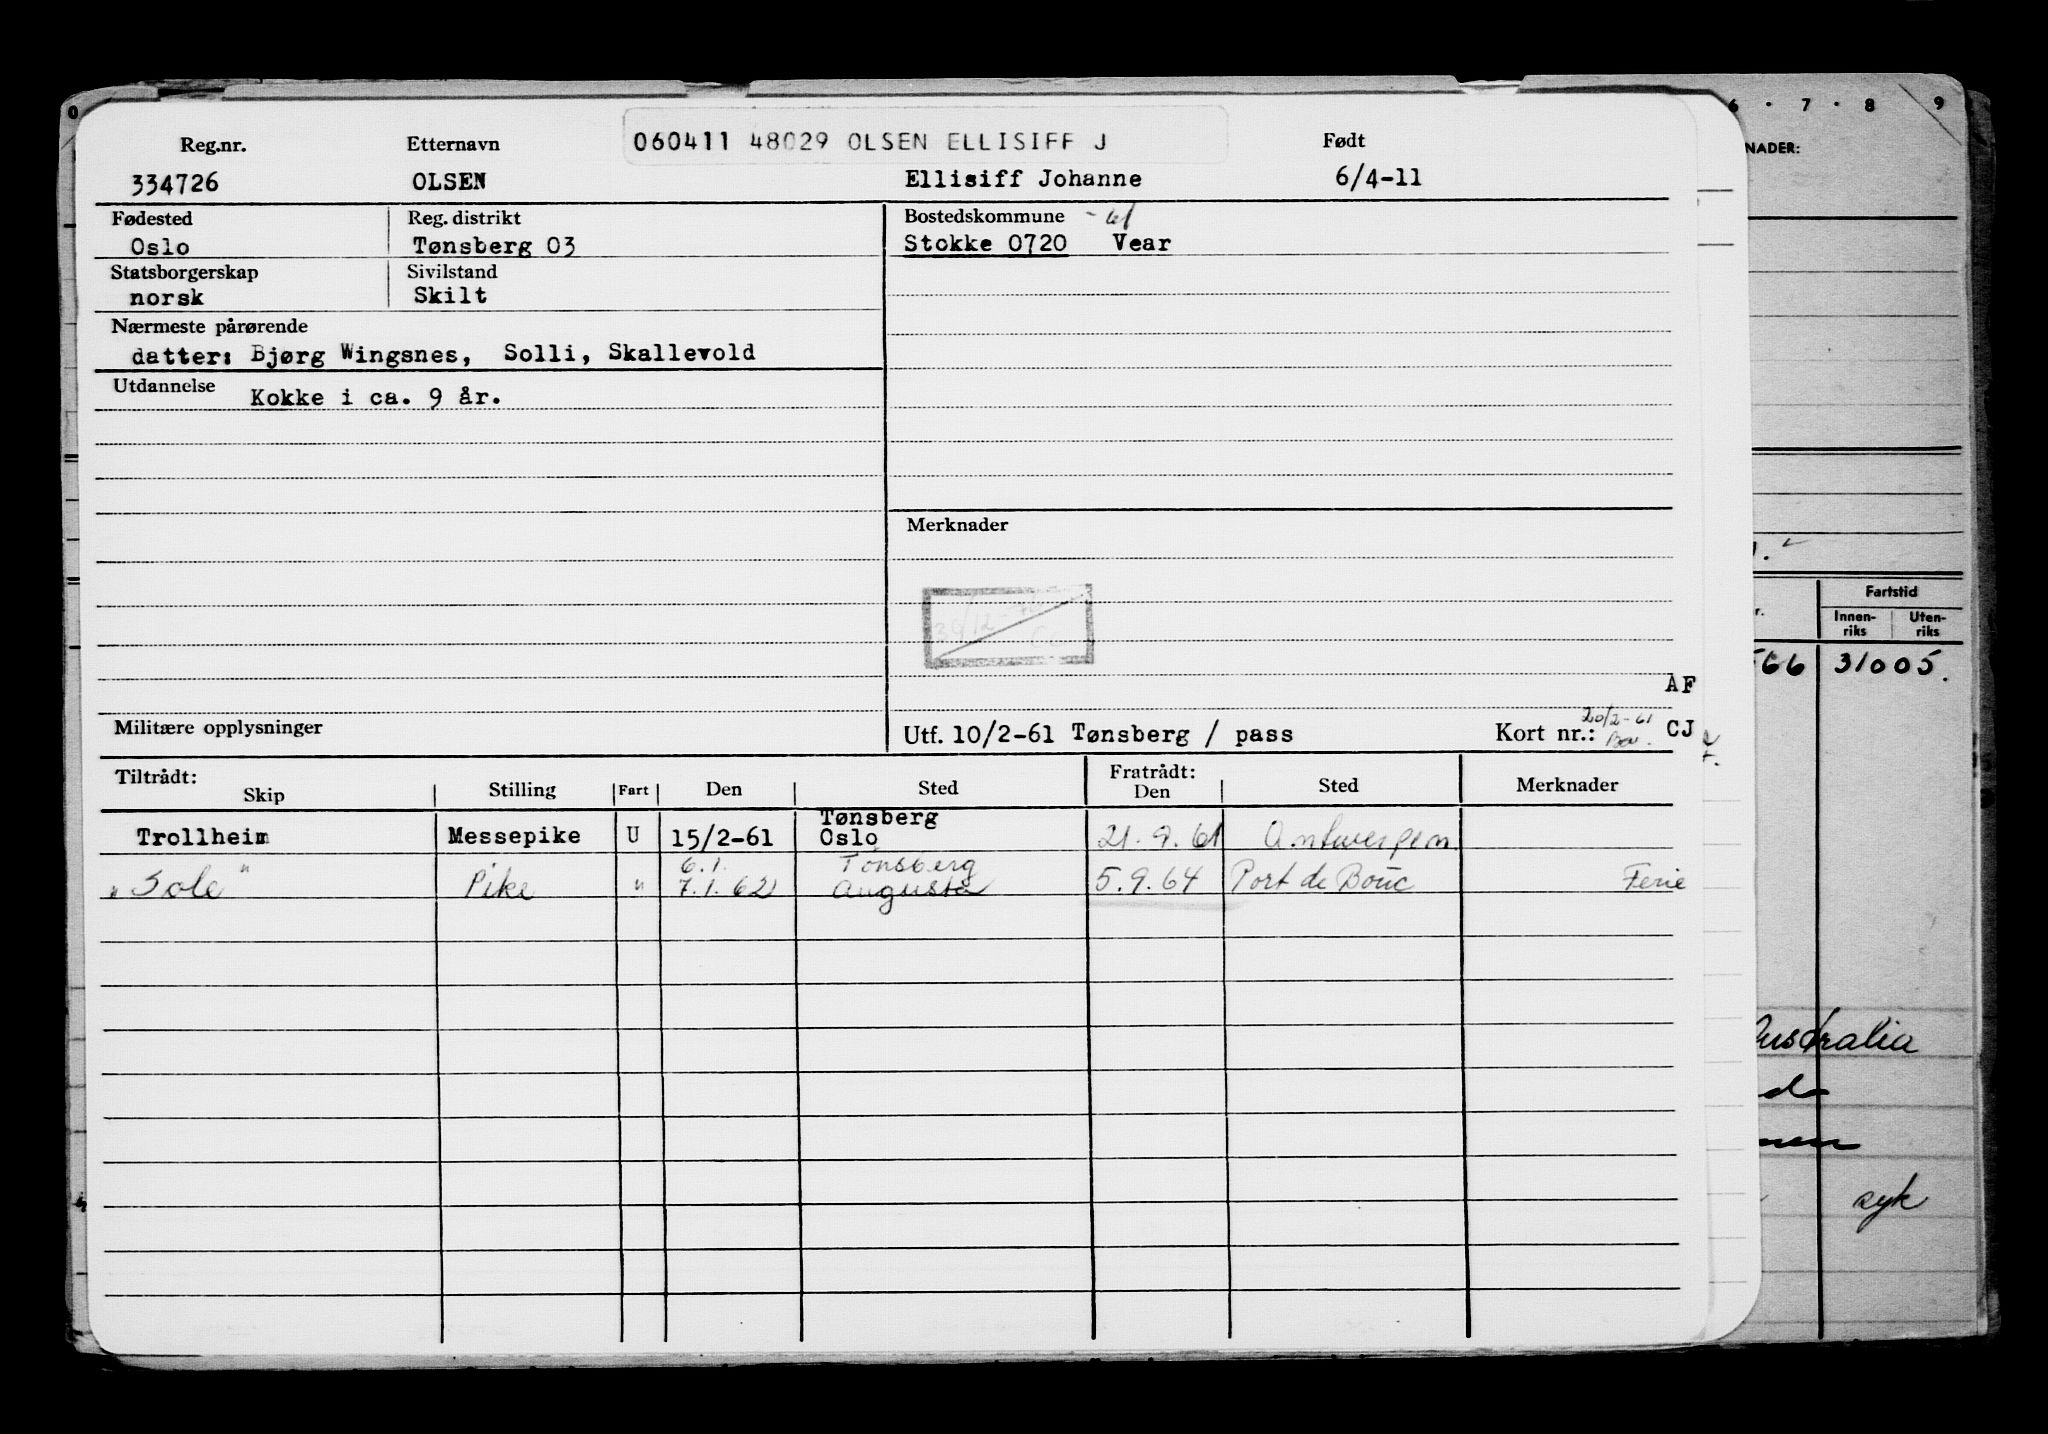 0 6 · 7 · 8 9
NADER:
Reg.nr. Etternavn 060411 48029 OLSEN ELLISIFF J Født
334726 OLSEN Ellisiff Johanne 6/4-11
Fødested Reg. distrikt Bostedskommune - 61
Oslo Tønsberg 03 Stokke 0720 Vear
Statsborgerskap Sivilstand
norsk Skilt
Nærmeste pårørende
datter: Bjørg Wingsnes, Solli, Skallevold
Utdannelse Kokke i ca. 9 år.
Merknader
Fartstid
Innen-riks Uten-riks
566 31005.
AF
Militære opplysninger Utf. 10/2-61 Tønsberg / pass Kort nr.: 20/2-61 CJ
Tiltrådt: Fratrådt:
Skip Stilling Fart Den Sted Den Sted Merknader
Tønsberg
Trollheim Messepike U 15/2-61 Oslo 21.9.61 Antwerpen
6.1. Tønsberg
"Sole" Pike " 7.1.62 Augusta 5.9.64 Port de Bouc Ferie
Australia
syk